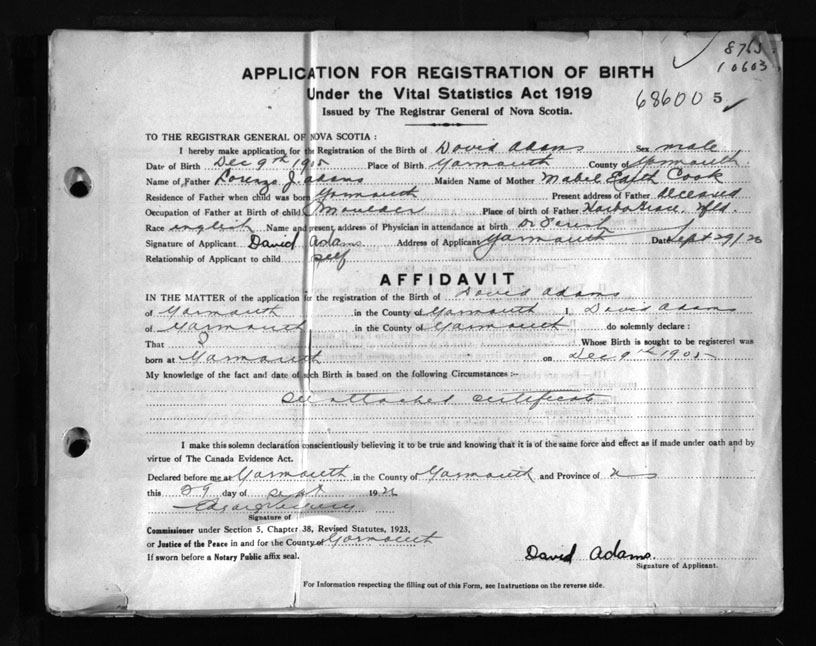 10603
686005
APPLICATION FOR REGISTRATION OF BIRTH
Under the Vital Statistics Act 1919
Issued by The Registrar General of Nova Scotia.
TO THE REGISTRAR GENERAL OF NOVA SCOTIA :
I hereby make application for the Registration of the Birth of David Adams Sex male
Date of Birth Dec 9th 1905 Place of Birth Yarmouth County of Yarmouth
Name of Father Lorenzo J. Adams Maiden Name of Mother Mabel Edith Cook
Residence of Father when child was born Yarmouth Present address of Father Deceased
Occupation of Father at Birth of child Moulder Place of birth of Father Harbor Grace, Nfld.
Race english Name and present address of Physician in attendance at birth Dr
Signature of Applicant David Adams Address of Applicant Yarmouth Date Sept 29/
Relationship of Applicant to child self
AFFIDAVIT
IN THE MATTER of the application for the registration of the Birth of David Adams
of Yarmouth in the County of Yarmouth I, David Adams
of Yarmouth in the County of Yarmouth do solemnly declare :
That I Whose Birth is sought to be registered was
born at Yarmouth on Dec 9th 1905
My knowledge of the fact and date of such Birth is based on the following Circumstances :-
attached certificate
I make this solemn declaration conscientiously believing it to be true and knowing that it is of the same force and effect as if made under oath and by
virtue of The Canada Evidence Act.
Declared before me at Yarmouth in the County of Yarmouth and Province of N S
this 29 day of Sept 192
Signature of
Commissioner under Section 5, Chapter 38, Revised Statutes, 1923,
or Justice of the Peace in and for the County of Yarmouth
If sworn before a Notary Public affix seal.
David Adams
Signature of Applicant.
For Information respecting the filling out of this Form, see Instructions on the reverse side.